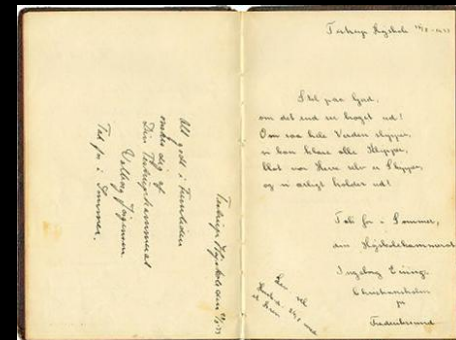 Alt godt i Fremtiden
ønskes dig af
Din Testrupkammerat
Valborg
Tak for i Sommer.
Testrup Højskole den
Testrup Højskole
Stol paa Gud,
om det end ser broget ud!
Om saa hele Verden glipper,
vi kan klare alle Klipper,
blot vor Herre selv er Skipper,
og vi ærligt holder ud!
Tak for i Sommer,
din Højskolekammerat
Ingeborg
Christiansholm
pr
Frederikssund
Lev vel